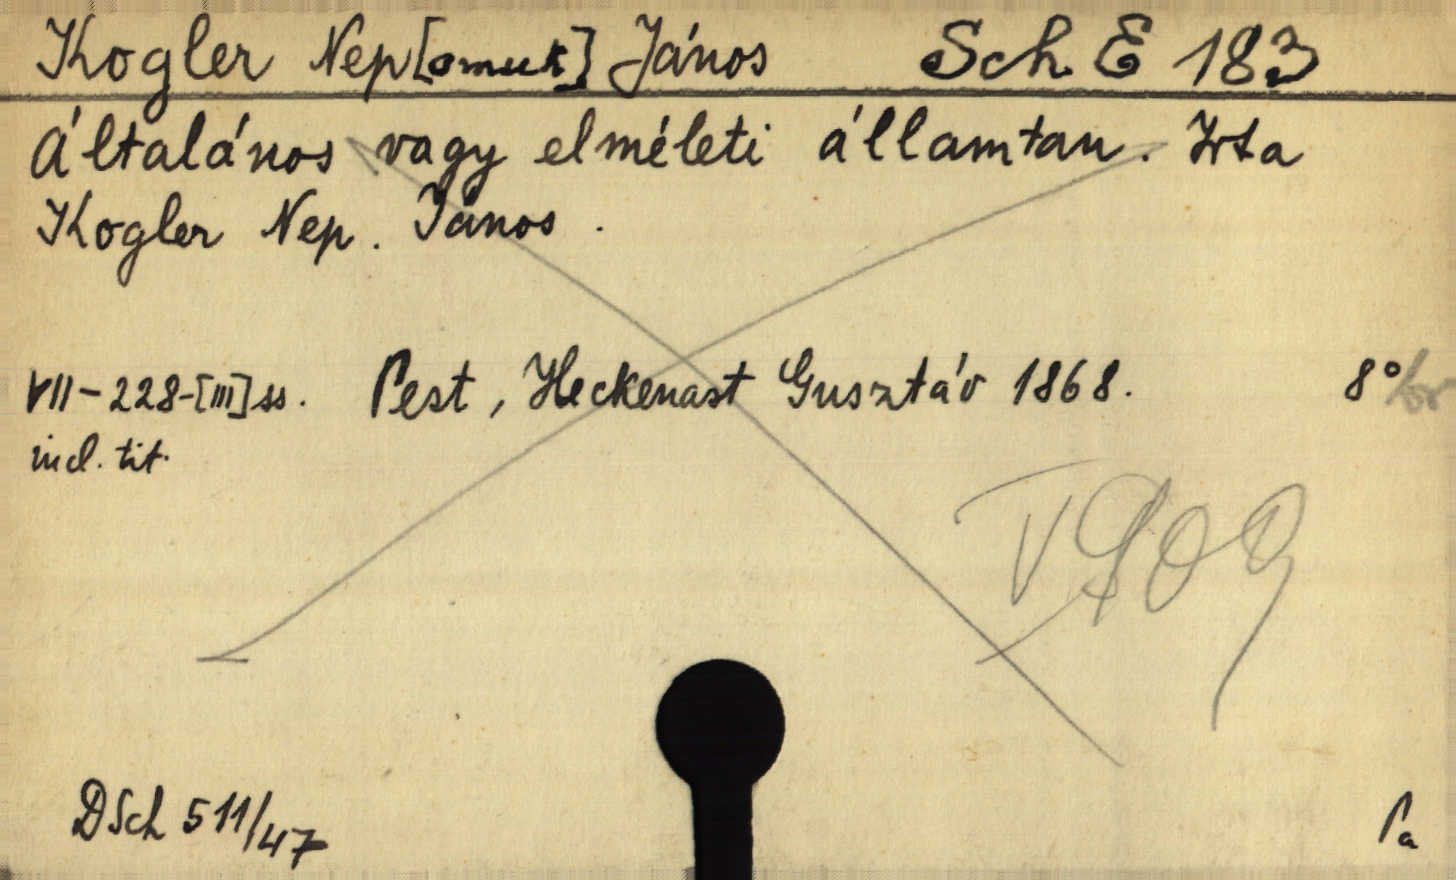 Kogler Nep[omuk] János Sch E 183
Általános vagy elméleti államtan. Irta
Kogler Nep. János.
VII-228-[III] ss. Pest, Heckenast Gusztáv 1868. 8°
incl. tit.
DSch 511/47
Pa